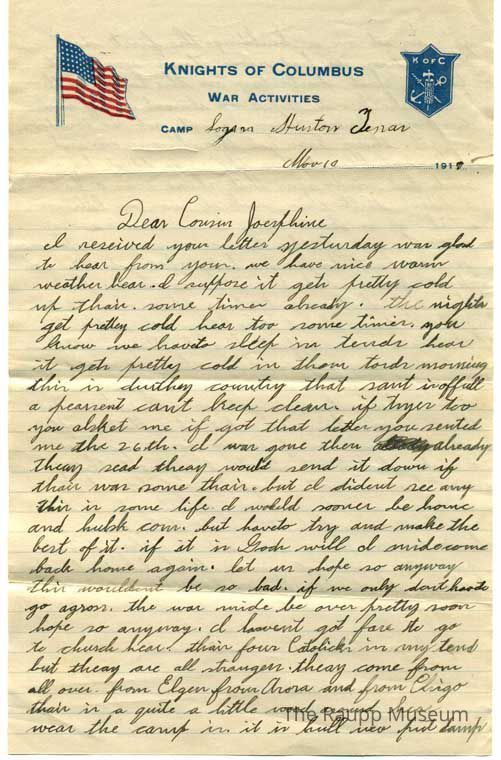 K OF C
KNIGHTS OF COLUMBUS
WAR ACTIVITIES
CAMP Logan Huston Texas
Nov 10 1917
Dear Cousin Joesphine
I reseived your letter yesturday was glad
to hear from your. we have nice warm
weather hear. I suppose it gets pretty cold
up thair. some times already. the nights
get prettey cold hear too some times. you
know we haveto sleep in tends hear
it gets pretty cold in them tords morning
this is durthey country that sant is offull
a pearsent can't keep clean. if tryes too
you asket me if got that letter you sented
me the 26th. I was gone then already
theay sead theay would send it down if
thair was some thair. but I dident see any
this is some life I would sooner be home
and hulsk corn. but haveto try and make the
best of it. if it is Gods will I mide come
back home again. let us hope so anyway
this wouldent be so bad. if we only dont haveto
go agross. the war mide be over pretty soon
hope so anyway. I havent got fare to go
to church hear. thair four Catolicks in my tend
but theay are all strangers. theay come from
all over. from Elgen from Arora and from Chigo
thair is a quite a little wood around hear
wear the camp is. it is bull new put camp
The Raupp Museum